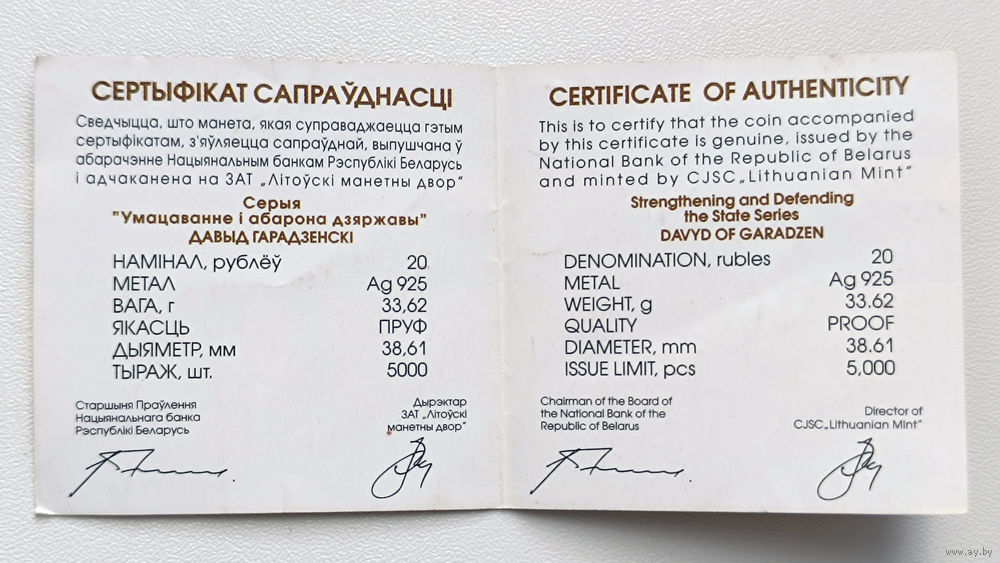 СЕРТЫФІКАТ САПРАЎДНАСЦІ
Сведчыцца, што манета, якая суправаджаецца гэтым
сертыфікатам, з'яўляецца сапраўднай, выпушчана ў
абарачэнне Нацыянальным банкам Рэспублікі Беларусь
і адчаканена на ЗАТ „Літоўскі манетны двор"
Серыя
"Умацаванне і абарона дзяржавы"
ДАВЫД ГАРАДЗЕНСКІ
НАМІНАЛ, рублёў 20
МЕТАЛ Ag 925
ВАГА, г 33,62
ЯКАСЦЬ ПРУФ
ДЫЯМЕТР, мм 38,61
ТЫРАЖ, шт. 5000
Старшыня Праўлення
Нацыянальнага банка
Рэспублікі Беларусь
Дырэктар
ЗАТ „Літоўскі
манетны двор"
CERTIFICATE OF AUTHENTICITY
This is to certify that the coin accompanied
by this certificate is genuine, issued by the
National Bank of the Republic of Belarus
and minted by CJSC „Lithuanian Mint"
Strengthening and Defending
the State Series
DAVYD OF GARADZEN
DENOMINATION, rubles 20
METAL Ag 925
WEIGHT, g 33.62
QUALITY PROOF
DIAMETER, mm 38.61
ISSUE LIMIT, pcs 5,000
Chairman of the Board of
the National Bank of the
Republic of Belarus
Director of
CJSC „Lithuanian Mint"
www.ay.by